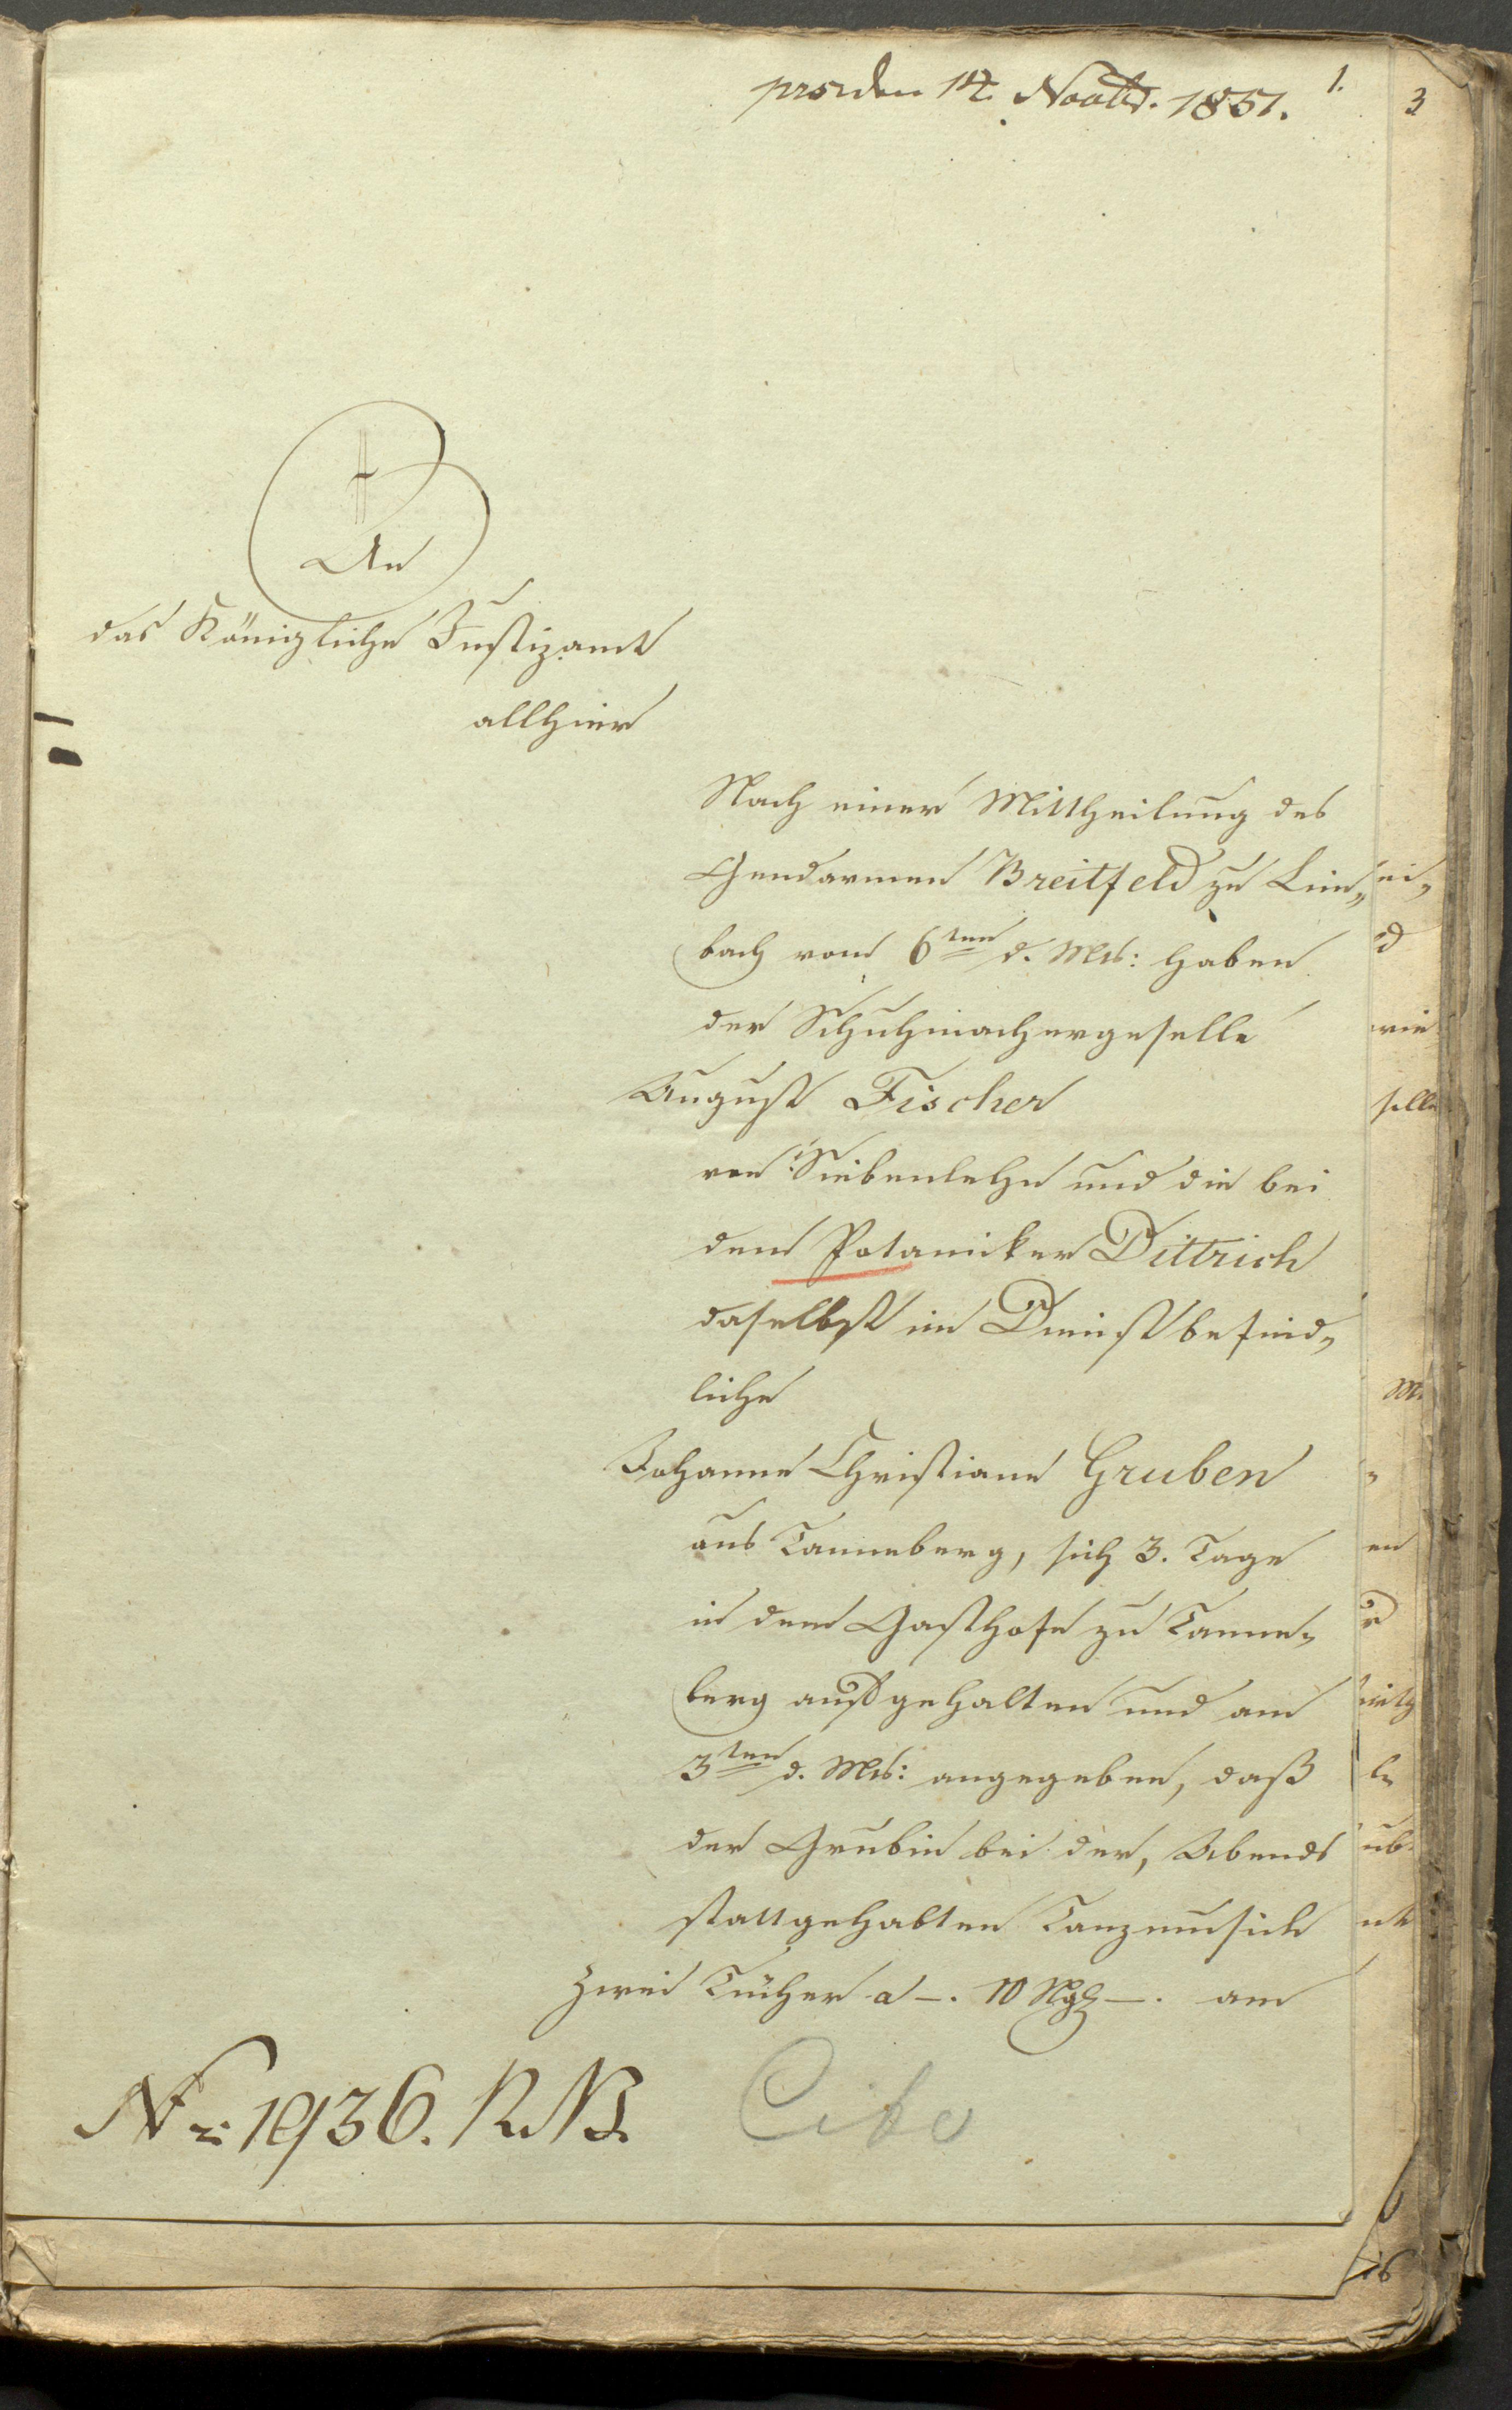 prs. den 14. Novbr. 1851.
1.
3
An
das Königliche Justizamt
allhier
Nach einer Mittheilung des
Gendarmen Breitfeld zu Lim¬
bach vom 6ten d. Mts: haben
der Schuhmachergeselle
August Fischer
von Siebenlehn und die bei
dem Botaniker Dittrich
daselbst im Dienst befind¬
liche
Johanne Christiane Gruben
aus Tanneberg, sich 3. Tage
in dem Gasthofe zu Tanne¬
berg aufgehalten und am
3ten d. Mts: angegeben, daß
der Grubin bei der, Abends
stattgehabten Tanzmusik
zwei Tücher a –. 10 Ngr –. am
No 1936. RNB.
Cito